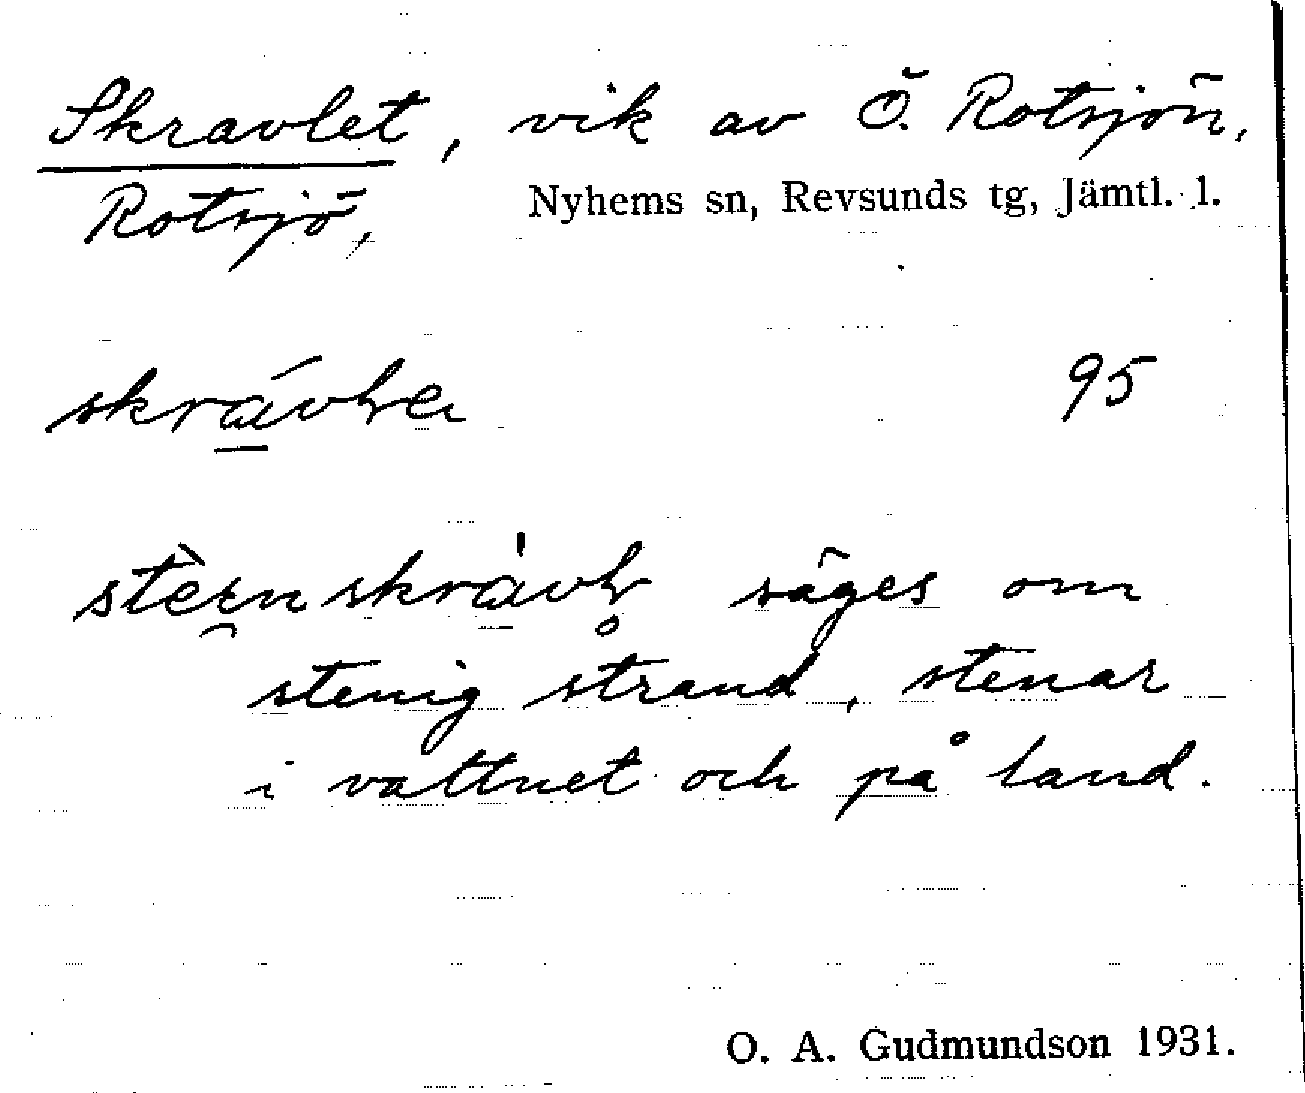 Skravlet, vik av Ö. Rotsjön,
Rotsjö, Nyhems sn, Revsunds tg, Jämtl. l.
95
säges om
stenig strand, stenar
i vattnet och på land.
O. A. Gudmundson 1931.